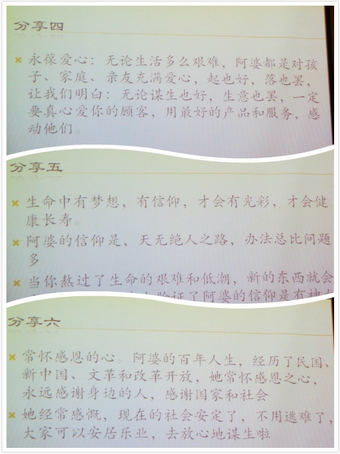 分享四
永保爱心：无论生活多么艰难，阿婆都是对孩
子、家庭、亲友充满爱心，起也好，落也罢，
让我们明白：无论谋生也好，生意也罢，一定
要真心爱你的顾客，用最好的产品和服务，感
动他们。
分享五
生命中有梦想，有信仰，才会有光彩，才会健
康长寿。
阿婆的信仰是，天无绝人之路，办法总比问题
多
当你熬过了生命的艰难和低潮，新的东西就会
验证了阿婆的信仰是有
分享六
常怀感恩的心。阿婆的百年人生，经历了民国、
新中国、文革和改革开放，她常怀感恩之心，
永远感谢身边的人，感谢国家和社会
她经常感慨，现在的社会安定了，不用逃难了，
大家可以安居乐业，去放心地谋生啦